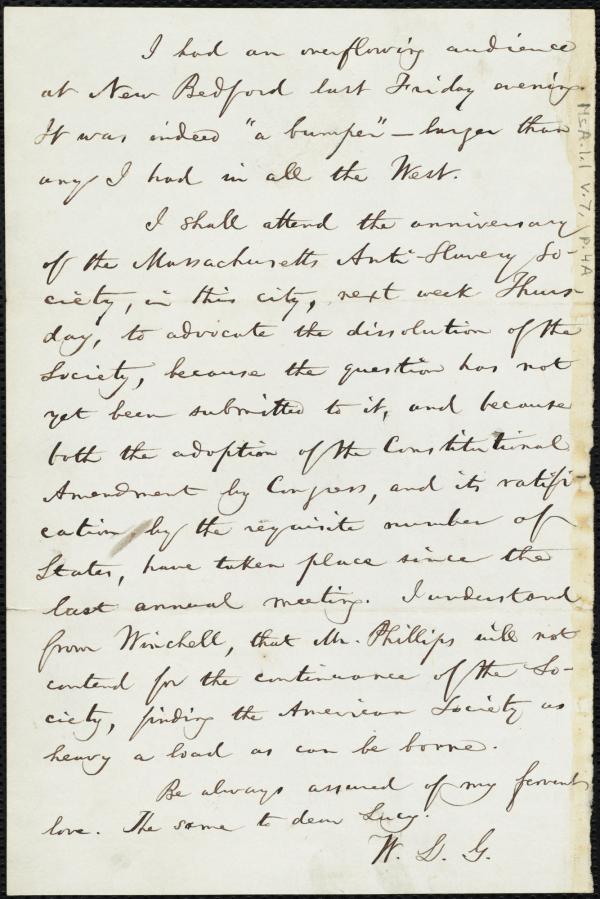 I had an overflowing audience
at New Bedford last Friday evening.
It was indeed "a bumper" — larger than
any I had in all the West.
I shall attend the anniversary
of the Massachusetts Anti-Slavery So-
ciety, in this city, next week Thurs-
day, to advocate the dissolution of the
Society, because the question has not
yet been submitted to it, and because
both the adoption of the Constitutional
Amendment by Congress, and its ratifi-
cation by the requisite number of
States, have taken place since the
last annual meeting. I understand
from Winchell, that Mr. Phillips will not
contend for the continuance of the So-
ciety, finding the American Society as
heavy a load as can be borne.
Be always assured of my fervent
love. The same to dear Lucy.
W. L. G.
Ms.A.1.1 V.7, p.4A